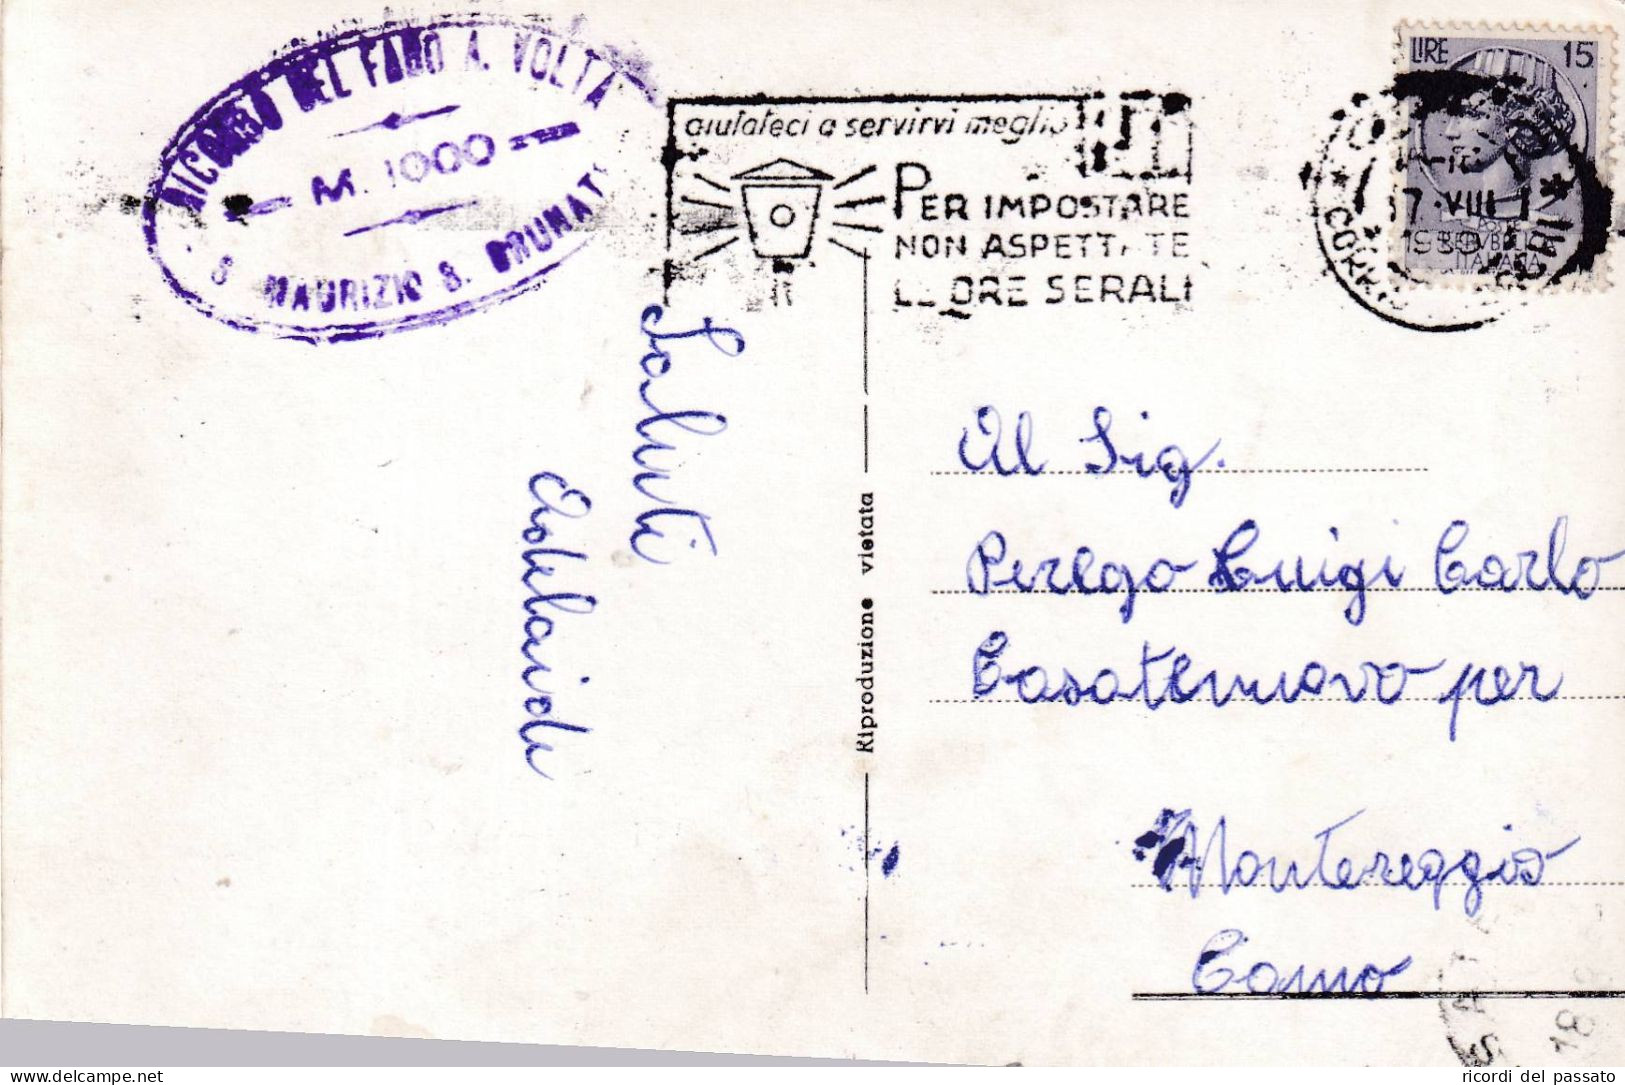 RICORDO DEL FARO A. VOLTA
M. 1000
S. MAURIZIO S. BRUNATE
aiutateci a servirvi meglio
PER IMPOSTARE
NON ASPETTATE
LE ORE SERALI
LIRE 15
17·VIII
CORR
Saluti
Adelaide
Riproduzione vietata
Al Sig.
Perego Luigi Carlo
Casatenuovo per
Montereggio
Como
CASATE
18
ricordi del passato